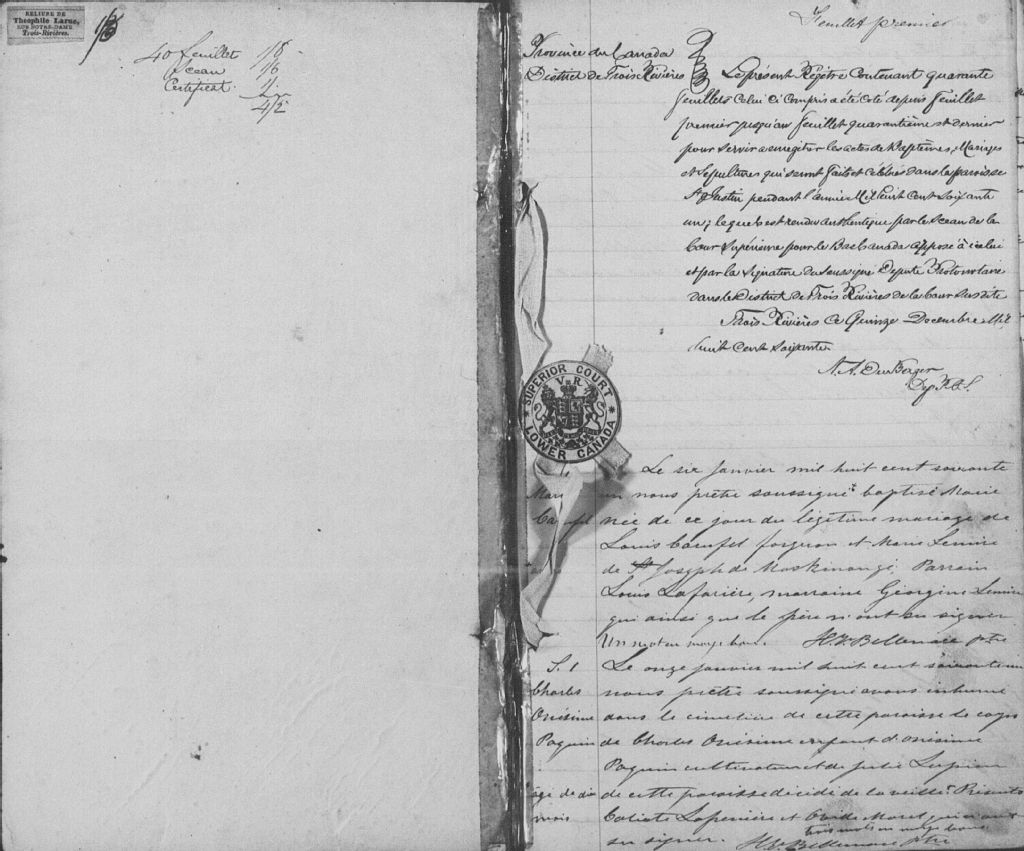 RELIURE DE
Théophile Larue,
RUE NOTRE-DAME
Trois-Rivières.
40 feuillet 1/8
Sceau 1/6
Certificat 1/.
4/2
Feuillet premier
Province du Canada
District de Trois Rivières
Le présent Régitre Contenant quarante
feuillets Celui ci Compris a été Coté depuis feuillet
premier jusqu'au feuillet quarantième et dernier
pour servir a enregitrer les actes de Baptèmes, Mariages
et Sépultures qui seront faits et Célébrés dans la paroisse
St Justin pendant l'année Mil huit Cent Soixante
un; lequel est rendu authentique par le Sceau de la
Cour Supérieure pour le Bas Canada apposé à icelui
et par la Signature du Soussigné Député Protonotaire
dans le District de Trois Rivières de la Cour Susdite
Trois Rivières Ce Quinze Décembre Mil
huit Cent Soixante.
Dep P.C.S.
SUPERIOR COURT
V R
LOWER CANADA
Le six janvier mil huit cent soixante
un nous prêtre soussigné baptisé Marie
née de ce jour du légitime mariage de
Louis forgeron et Marie Lemire
de St Joseph de Maskinongé. Parrain
Louis marraine Géorgine Lemire
qui ainsi que le père n'ont su signer
Un mot en marge bon. Ptre
S. 1
Charles
Onésime
Paquin
agé de dix
mois
Le onze janvier mil huit cent soixante un
nous prêtre soussigné avons inhumé
dans le cimetière de cette paroisse le corps
de Charles Onésime enfant d'onésime
Paquin cultivateur et de julie Lupien
de cette paroisse décédé de la veille. Présents
Calixte et Ovide qui n'ont
su signer. trois mots en marge bons.
Ptre